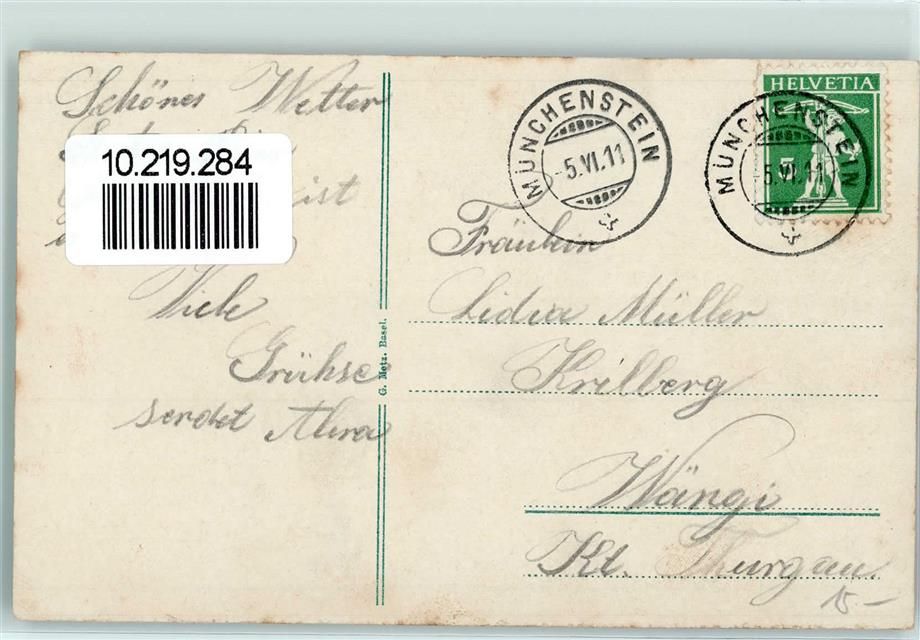 Schönes Wetter
10.219.284
ist
Viele
Grühse
sendet
G. Metz. Basel.
MÜNCHENSTEIN
-5.VI.11
HELVETIA
5
MÜNCHENSTEIN
-5.VI.11
Fräulein
Lidia Müller
Krilberg
Wängi
Kt. Thurgau.
15-